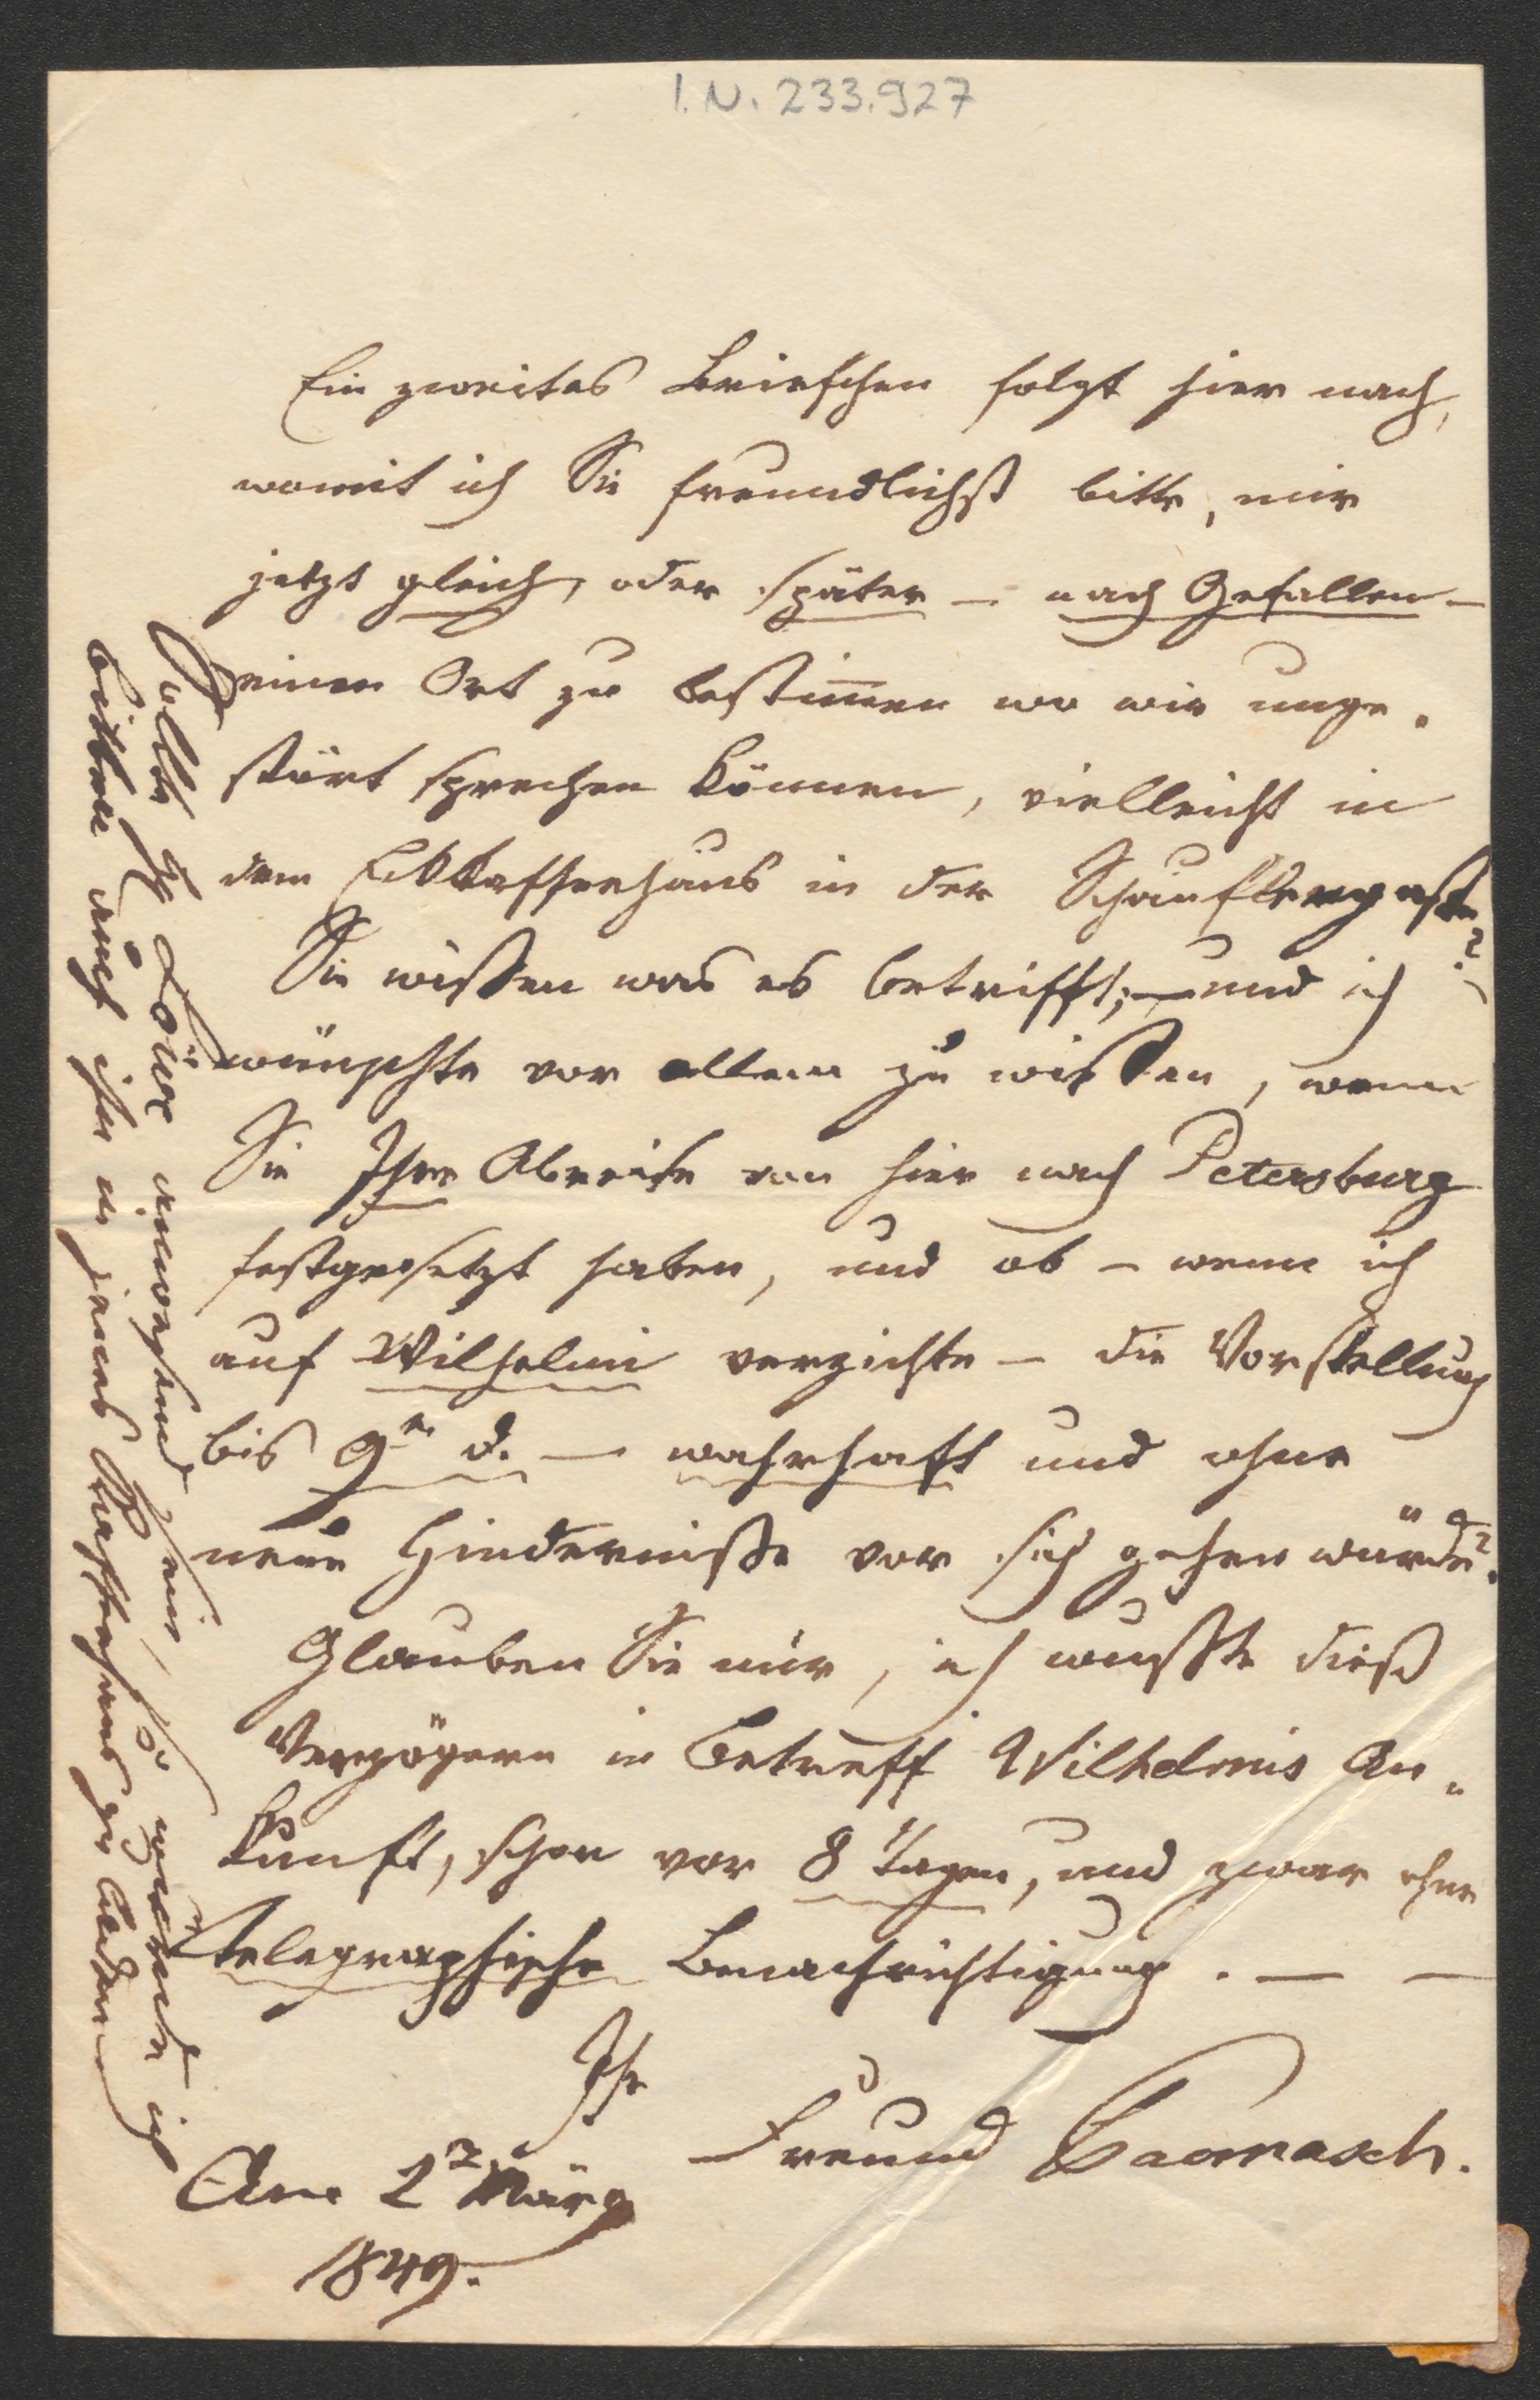 I.N. 233.927
Ein zweites Briefchen folgt hier nach,
womit ich Sie freundlichst bitte, mir
jetzt gleich, oder später – nach Gefallen –
einen Ort zu bestim̅en wo wir unge-
stört sprechen können, vielleicht in
dem Eckkaffeehaus in der Schauflergasse?
Sie wissen was es betrifft; – und ich
wünschte vor allem zu wissen, wenn
Sie Ihre Abreise von hier nach Petersburg
festgesetzt haben, und ob – wenn ich
auf Wilhelmi verzichte – die Vorstellung
bis 9n d. – wahrhaft und ohne
neue Hindernisse vor sich gehen würde?
Glauben Sie mir, ich wusste dieß
Verzögern in Betreff Wilhelmis An-
kunft, schon vor 8 Tagen, und zwar ohne
telegraphische Benachrichtigung. – –
Ihr
Freund
Am 2n März
1849.
Sollte H Löwe anwesend sein, so würde ich
bitten auch ihn in jenes Kaffeehaus zu laden